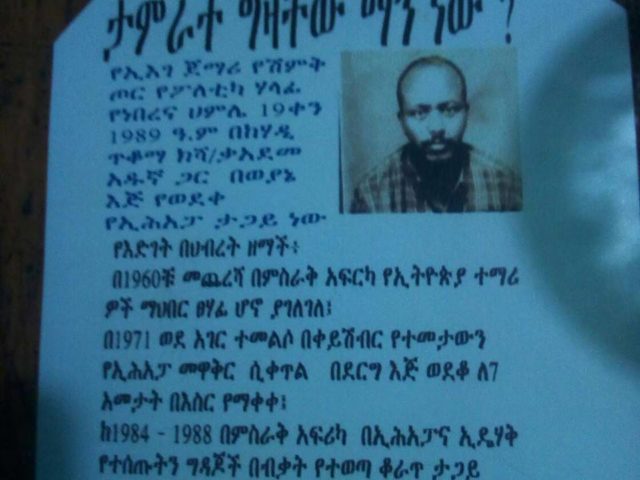 ታምራት ግዛቸው ማን ነው ?
የኢአገ ጀማሪ የሽምቅ
ጦር የፖለቲካ ሃላፊ
የነበረና ሀምሌ 19ቀን
1989 ዓ.ም በከሃዲ
ጥቆማ ከሻ/ቃአደመ
አዱኛ ጋር በወያኔ
እጅ የወደቀ
የኢሕአፓ ታጋይ ነው
የእድገት በህብረት ዘማች፥
በ1960ቹ መጨረሻ በምስራቅ አፍርካ የኢትዮጵያ ተማሪ
ዎች ማህበር ፀሃፊ ሆኖ ያገለገለ፤
በ1971 ወደ አገር ተመልሶ በቀይሽብር የተመታውን
የኢሕአፓ መዋቅር ሲቀጥል በደርግ እጅ ወደቆ ለ7
አመታት በእስር የማቀቀ፤
ከ1984 - 1988 በምስራቅ አፍሪካ በኢሕአፓና ኢዴሃቅ
የተሰጡትን ግዳጆች በብቃት የተወጣ ቆራጥ ታጋይ